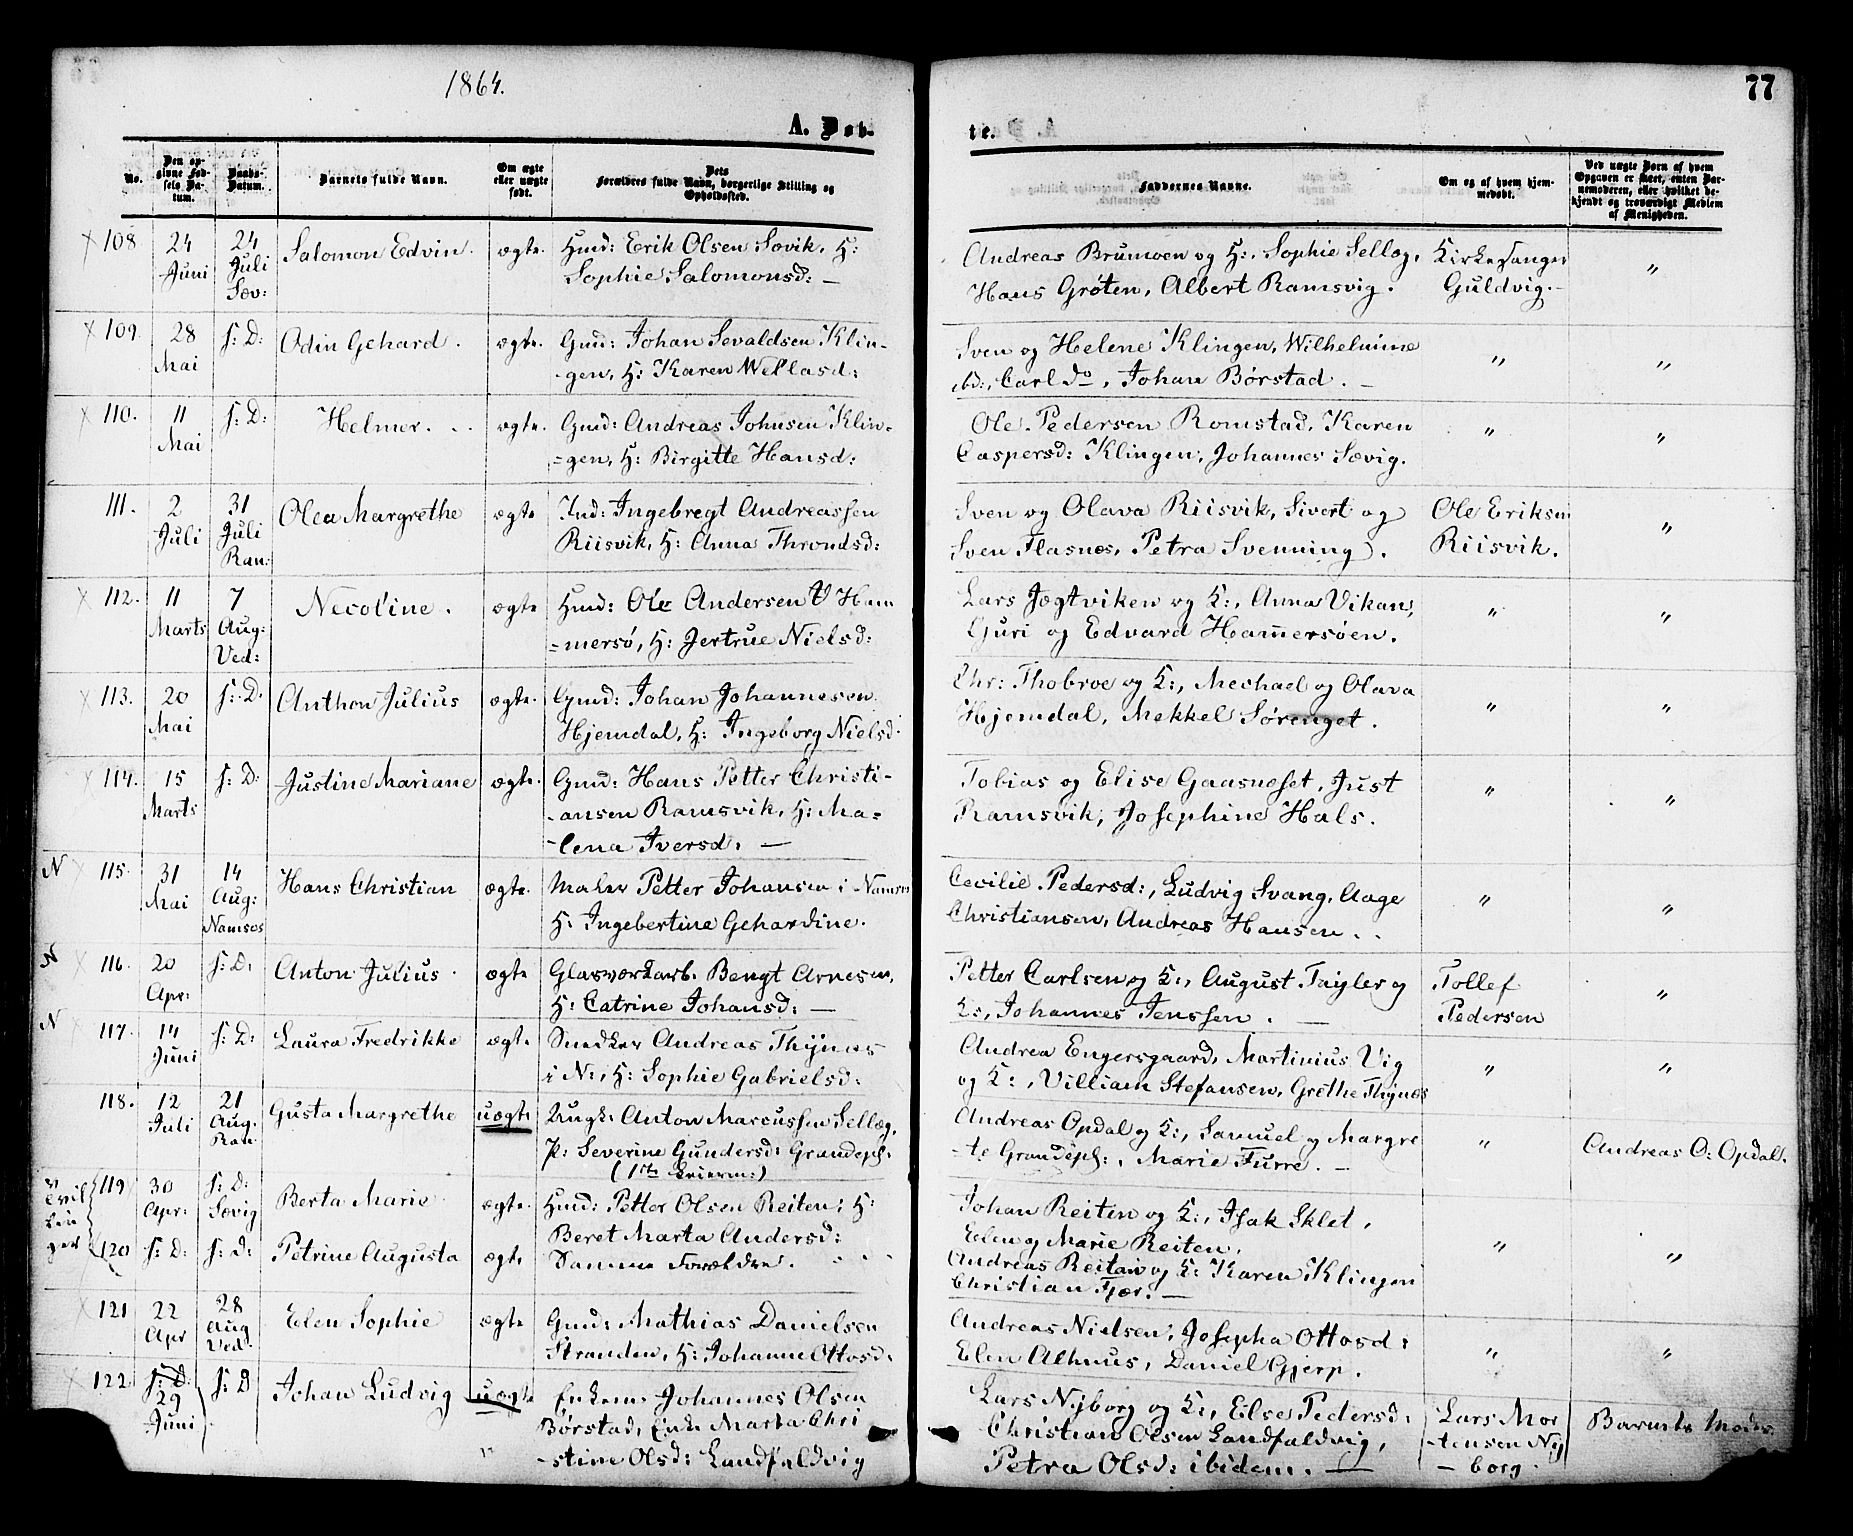 1864.
77
A. Døb-
te.
No.
Den op-
givne Fød-
sels Da-
tum.
Daabs-
Datum.
Barnets fulde Navn.
Om ægte
eller uægte
født.
Dets
Forældres fulde Navn, borgerlige Stilling og
Opholdssted.
Faddernes Navne.
Om og af hvem hjem-
medøbt.
Ved uægte Børn af hvem
Opgaven er skeet, enten Bar-
nemoderen, eller hvilket be-
kjendt og troværdigt Medlem
af Menigheden.
108 24 Juni 24 Juli Sæv: Salomon Edvin. ægte. Hmd: Erik Olsen Sovik, H:
Sophie Salomonsd: —
Andreas Brumoen og H:, Sophie Sellæg,
Hans Grøten, Albert Ramsvig.
Kirkesanger
Guldvig. "
109. 28 Mai s: D: Odin Gehard. ægte. Gmd: Johan Sevaldsen Klin-
gen, H: Karen Wellasd:
Sven og Helene Klingen, Wilhelmine
ibd:, Carl do, Johan Børstad. — " "
110. 11 Mai s: D: Helmer. ægte. Gmd: Andreas Johnsen Klin-
=gen, H: Birgitte Hansd:
Ole Pedersen Romstad, Karen
Caspersd: Klingen, Johannes Sævig. " "
111. 2 Juli 31 Juli Ran: Olea Margrethe ægte Ind: Ingebregt Andreassen
Riisvik, H: Anna Throndsd:
Sven og Olava Riisvik, Sivert og
Sven Flasnes, Petra Svenning).
Ole Eriksen
Riisvik. "
112. 11 Marts 7 Aug: Ved: Necoline. ægte Hmd: Ole Andersen Ham
=mersø, H: Jertrue Nielsd:
Lars Jægtviken og K:, Anna Vikan,
Guri og Edvard Hamersøen. " "
113. 20 Mai s: D. Anthon Julius ægte. Gmd: Johan Johannesen
Hjemdal, H: Ingeborg Nielsd.
Chr: Thobroe og K:, Mechael og Olava
Hjemdal, Mekkel Sørenget. " "
114. 15 Marts s: D: Justine Mariane ægte. Gmd: Hans Petter Christi-
-ansen Ramsvik, H: Ma-
-lena Iversd: —
Tobias og Elise Gaasneset, Just
Ramsvik, Josephine Hals. " "
N 115. 31 Mai 14 Aug: Namsos Hans Christian ægte. Maler Petter Johansen i Namsos
H: Ingebertine Gehardine.
Cecilie Pedersd:, Ludvig Svang, Aage
Christiansen, Andreas Hansen. " "
N 116. 20 Apr: s: D: Anton Julius ægte Glasværkarb. Bengt Arnesen,
H: Catrine Johansd: —
Petter Carlsen og K:, August Taigler og
K:, Johannes Jenssen. —
Tollef
Pedersen "
N 117. 14 Juni s: D: Laura Fredrikke ægte Snedker Andreas Thijnæs
i N:, H: Sophie Gabrielsd:
Andrea Engersgaard, Martinius Vig
og K:, Villiam Stefansen, Grethe Thijnæs " "
118. 12 Juli 21 Aug. Ran. Gusta Margrethe uægte Ungk: Anton Marcussen Sellæg,
P: Severine Gundersd: Grandepl:
(1ste Leierm:)
Andreas Opdal og K:, Samuel og Margre
-te Grandepl:, Marie Furre. — "
Andreas O: Opdal.
Tvil
lin
ger
119 30 Apr: s: D: Sævig Berta Marie ægte. Hmd: Petter Olsen Reiten, H:
Beret Marta Andersd:
Johan Reiten og K:, Isak Sklet,
Elen og Marie Reiten.
120 s: D: s: d: Petrine Augusta ægte Samme Forældre.
Andreas Reitan og K: Karen Klingen
Christian Fjær. — " "
121 22 Apr 28 Aug Ved. Elen Sophie ægte Gmd: Mathias Danielsen
Stranden, H: Johanne Ottosd:
Andreas Nielsen, Josepha Ottosd:
Elen Alhuus, Daniel Gjerp. " "
122. s: D: 29 Juni s: D Johan Ludvig uægte Enkem: Johannes Olsen
Børstad, Enke Marta Chri
-stine Olsd: Landfaldvig
Lars Nijborg og K:, Else Pedersd:
Christian Olsen Landfaldvig,
Petra Olsd: ibidem. —
Lars Mor
-tensen Nij
-borg.
Barnets Moder